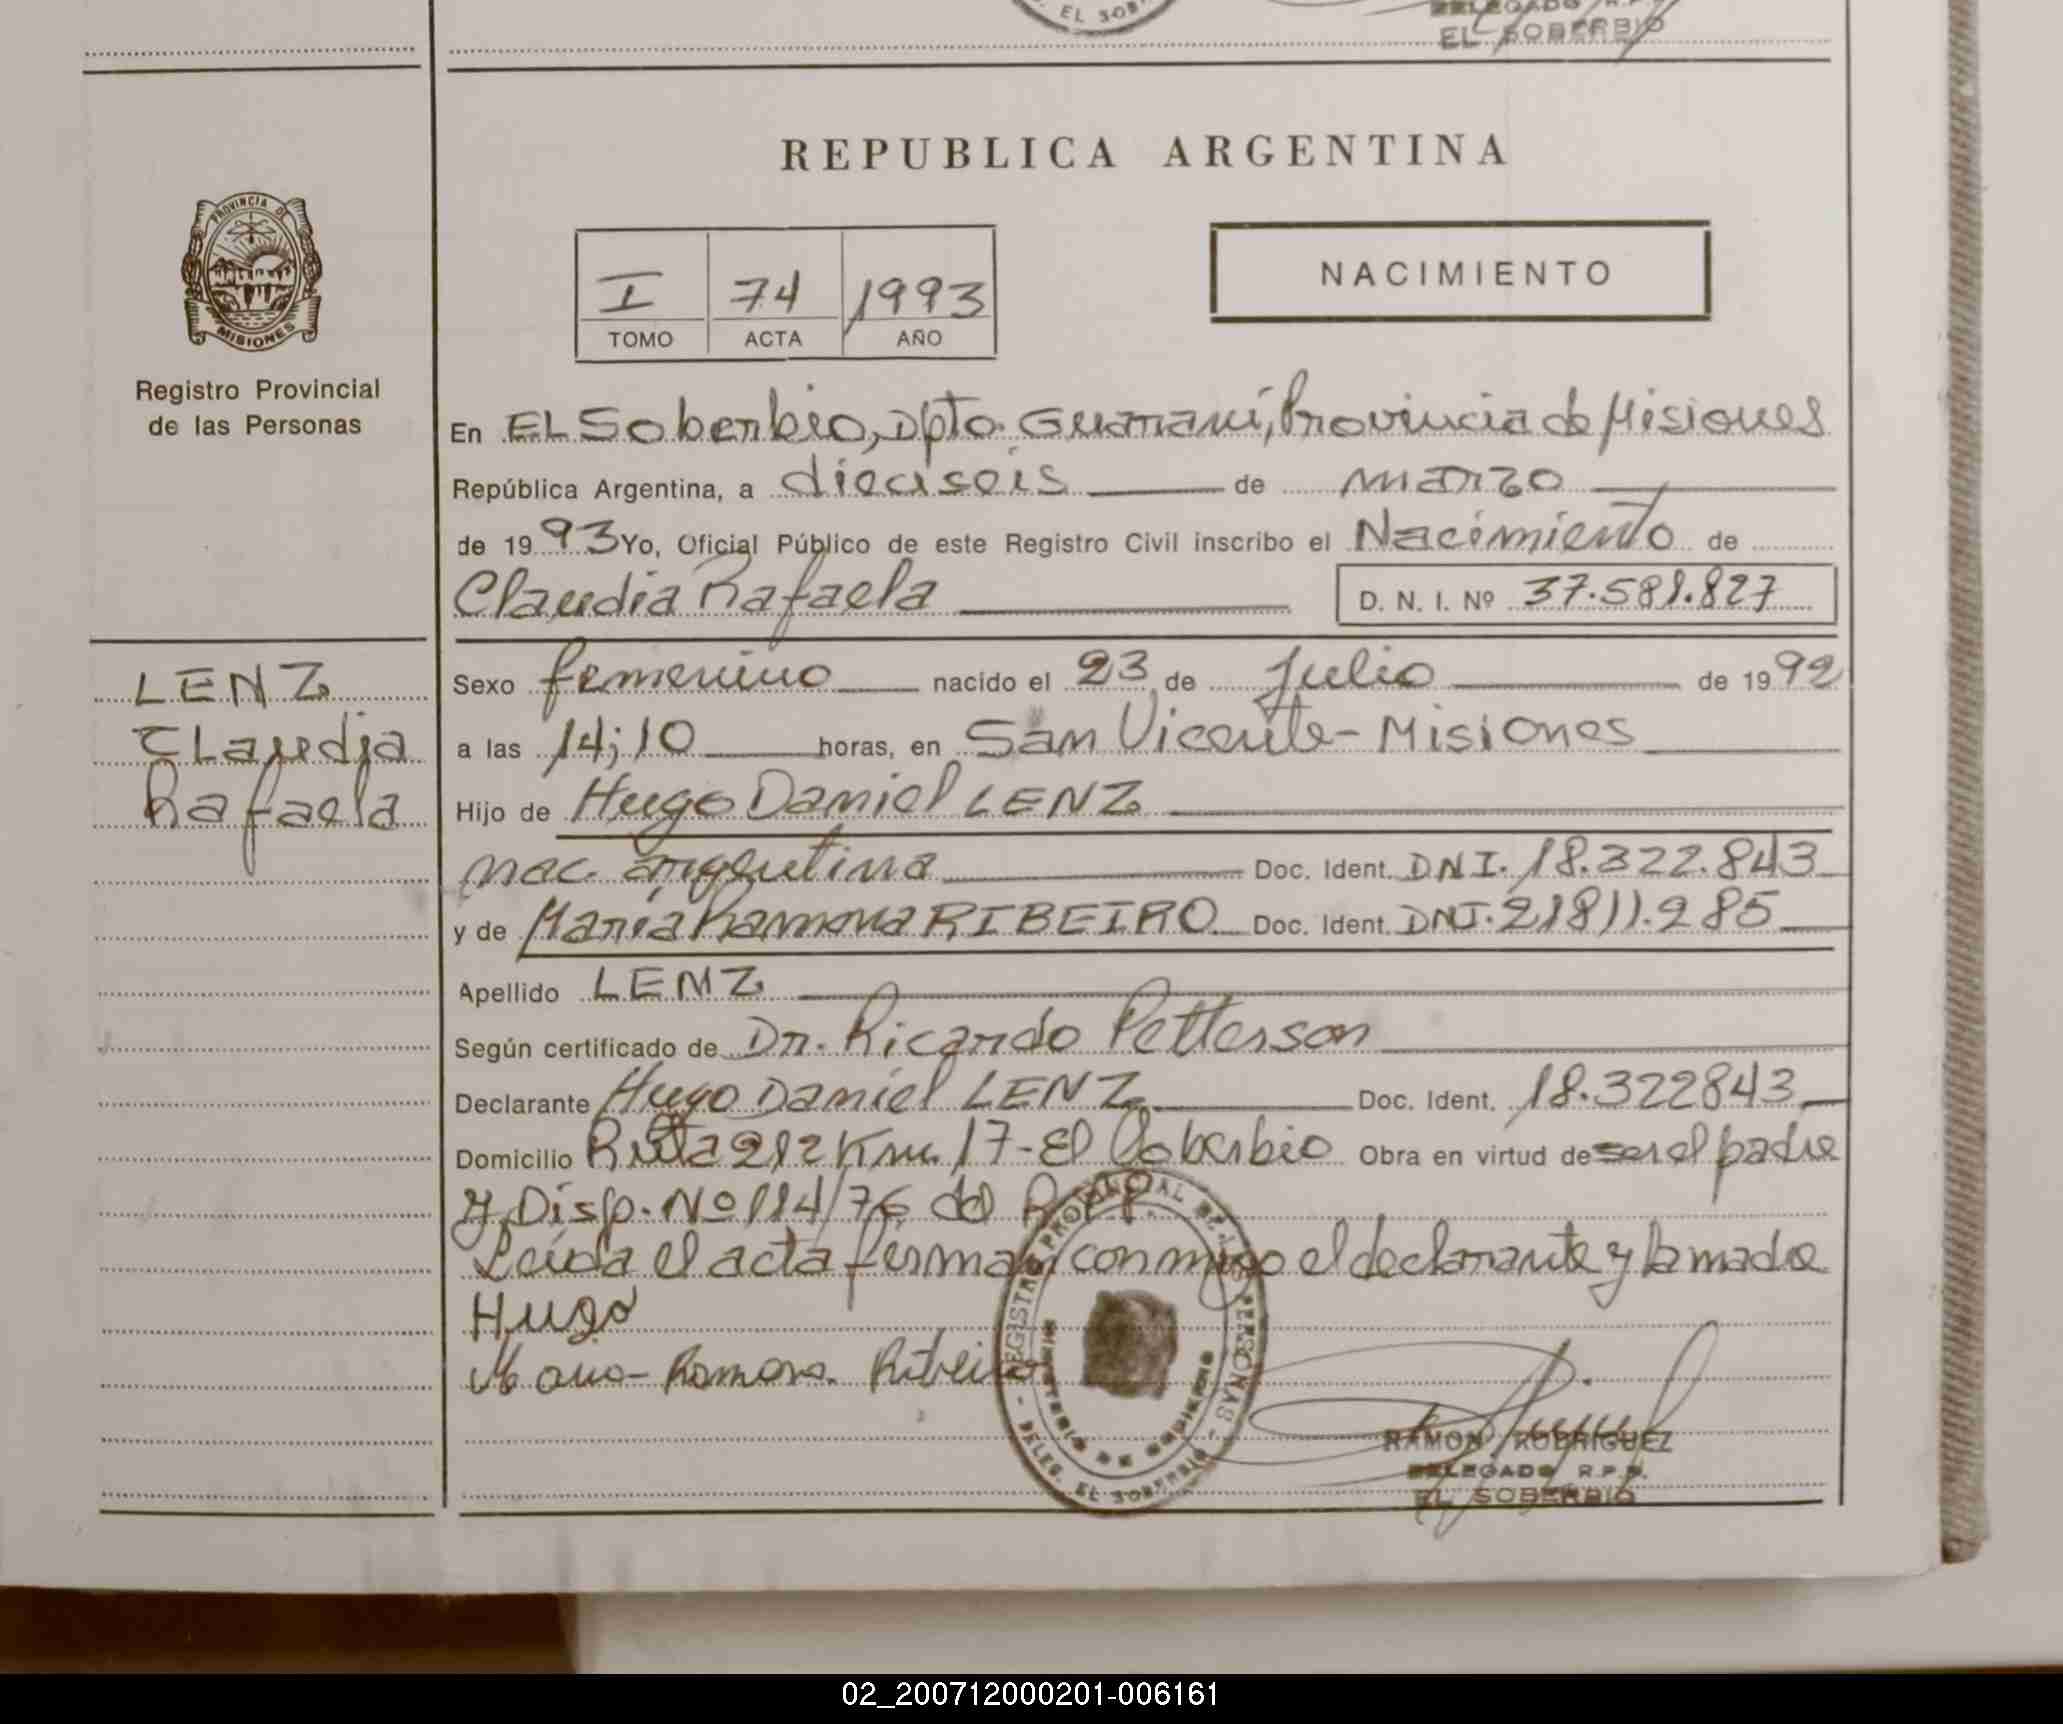 DELEGADO R.P.
EL SOBERBIO
EL SOB
REPUBLICA ARGENTINA
PROVINCIA DE
MISIONES
Registro Provincial
de las Personas
I 74 1993
TOMO ACTA AÑO
NACIMIENTO
En EL Soberbio, Dpto. Guaraní, Provincia de Misiones
República Argentina, a dieciseis de marzo
de 1993 Yo, Oficial Público de este Registro Civil inscribo el Nacimiento de
Claudia Rafaela D. N. I. Nº 37.589.827
LENZ
Claudia
Rafaela
Sexo femenino nacido el 23 de Julio de 1992
a las 14;10 horas, en San Vicente - Misiones
Hijo de Hugo Daniel LENZ
nac. argentina Doc. Ident. DNI. 18.322.843
y de María Ramona RIBEIRO Doc. Ident. DNI. 21811.285
Apellido LENZ
Según certificado de Dr. Ricardo Petterson
Declarante Hugo Daniel LENZ Doc. Ident. 18.322843
Domicilio Ruta 212 Km. 17 - El Soberbio Obra en virtud de ser el padre
y Disp. Nº 114/76 del R.P.P.
Leída el acta firman conmigo el declarante y la madre
Hugo
Maria - Ramona. Ribeiro
REGISTRO PROVINCIAL DE LAS PERSONAS - DELEG. EL SOBERBIO -
MINISTERIO DE GOBIERNO
RAMON RODRIGUEZ
DELEGADO R.P.P.
EL SOBERBIO
02_200712000201-006161